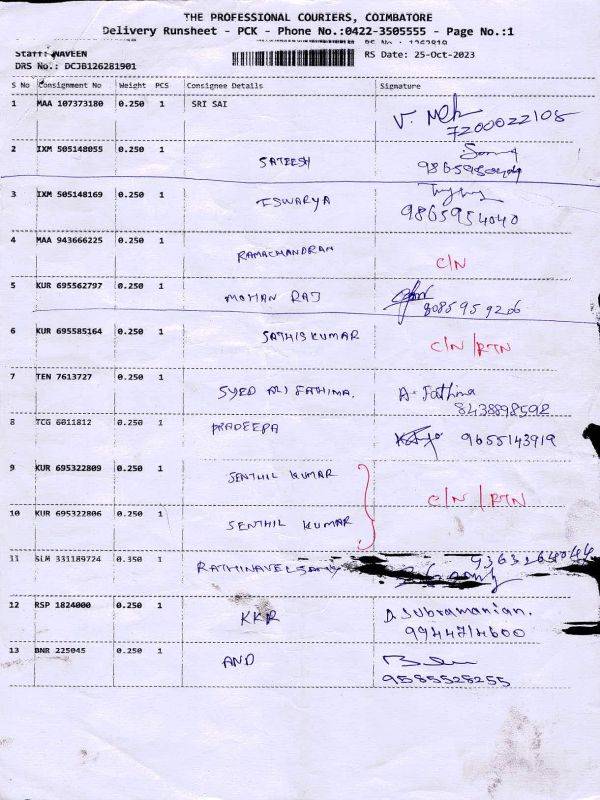 THE PROFESSIONAL COURIERS, COIMBATORE
Delivery Runsheet - PCK - Phone No.:0422-3505555 - Page No.:1
Staff: NAVEEN
RS No : 1262819
DRS No.: DCJB126281901
RS Date: 25-Oct-2023
S No Consignment No Weight PCS Consignee Details Signature
1 MAA 107373180 0.250 1 SRI SAI
7200022108
2 IXM 505148055 0.250 1 SATEESH
3 IXM 505148169 0.250 1 ISWARYA
9865954040
4 MAA 943666225 0.250 1 RAMACHANDRAN C/N
5 KUR 695562797 0.250 1 MOHAN RAJ
8085959206
6 KUR 695585164 0.250 1 SATHISKUMAR C/N/RTN
7 TEN 7613727 0.250 1 SYED ALI FATHIMA. A. Fathima
8438898592
8 TCG 6011812 0.250 1 PRADEEPA 9655143919
9 KUR 695322809 0.250 1 SENTHIL KUMAR C/N/RTN
10 KUR 695322806 0.250 1 SENTHIL KUMAR
11 SLM 331189724 0.350 1 RATHINAVELSAMY 9363264044
12 RSP 1824000 0.250 1 KKR D. Subramanian.
9944714600
13 BNR 225045 0.250 1 AND
9585528255